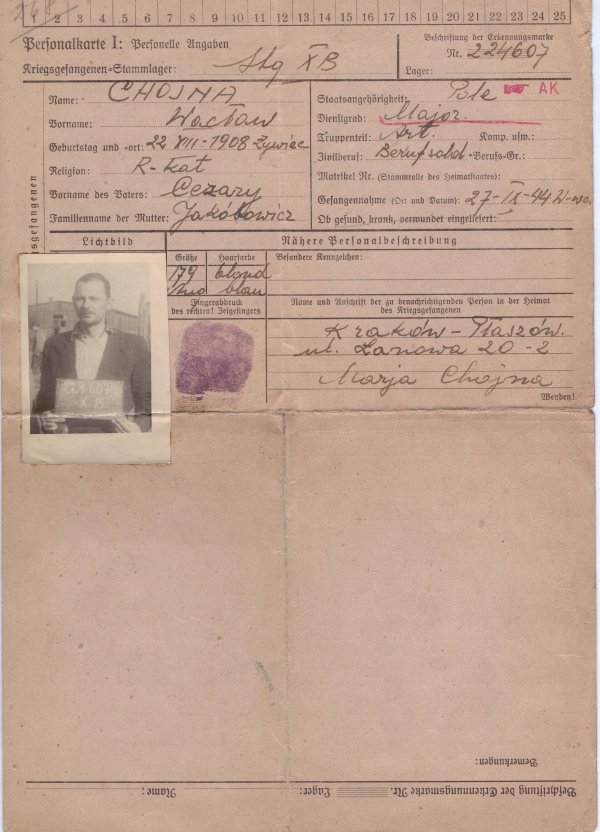 2 3 4 5 6 7 8 9 10 11 12 13 14 15 16 17 18 19 20 21 22 23 24 25
Personalkarte I: Personelle Angaben
Kriegsgefangenen-Stammlager: Stlg XB
Beschriftung der Erkennungsmarke
Nr. 224607
Lager:
Name: CHOJNA
Vorname: Wacław
Geburtstag und -ort: 22 VIII-1908 Żywiec
Religion: R-kat
Vorname des Vaters: Cezary
Familienname der Mutter: Jakóbowicz
Staatsangehörigkeit: Pole AK
Dienstgrad: Major.
Truppenteil: Art. Komp. usw.:
Zivilberuf: Berufsold Berufs-Gr.:
Matrikel Nr. (Stammrolle des Heimatstaates):
Gefangennahme (Ort und Datum): 27-IX-44
Ob gesund, krank, verwundet eingeliefert:
Lichtbild
Nähere Personalbeschreibung
Größe Haarfarbe Besondere Kennzeichen:
179 blond
blau
Fingerabdruck
des rechten! Zeigefingers
Name und Anschrift der zu benachrichtigenden Person in der Heimat
des Kriegsgefangenen
Kraków-Płaszów.
ul. Łanowa 20-2
Marja Chojna
Wenden!
Bemerkungen:
Beschriftung der Erkennungsmarke Nr. Lager: Name: